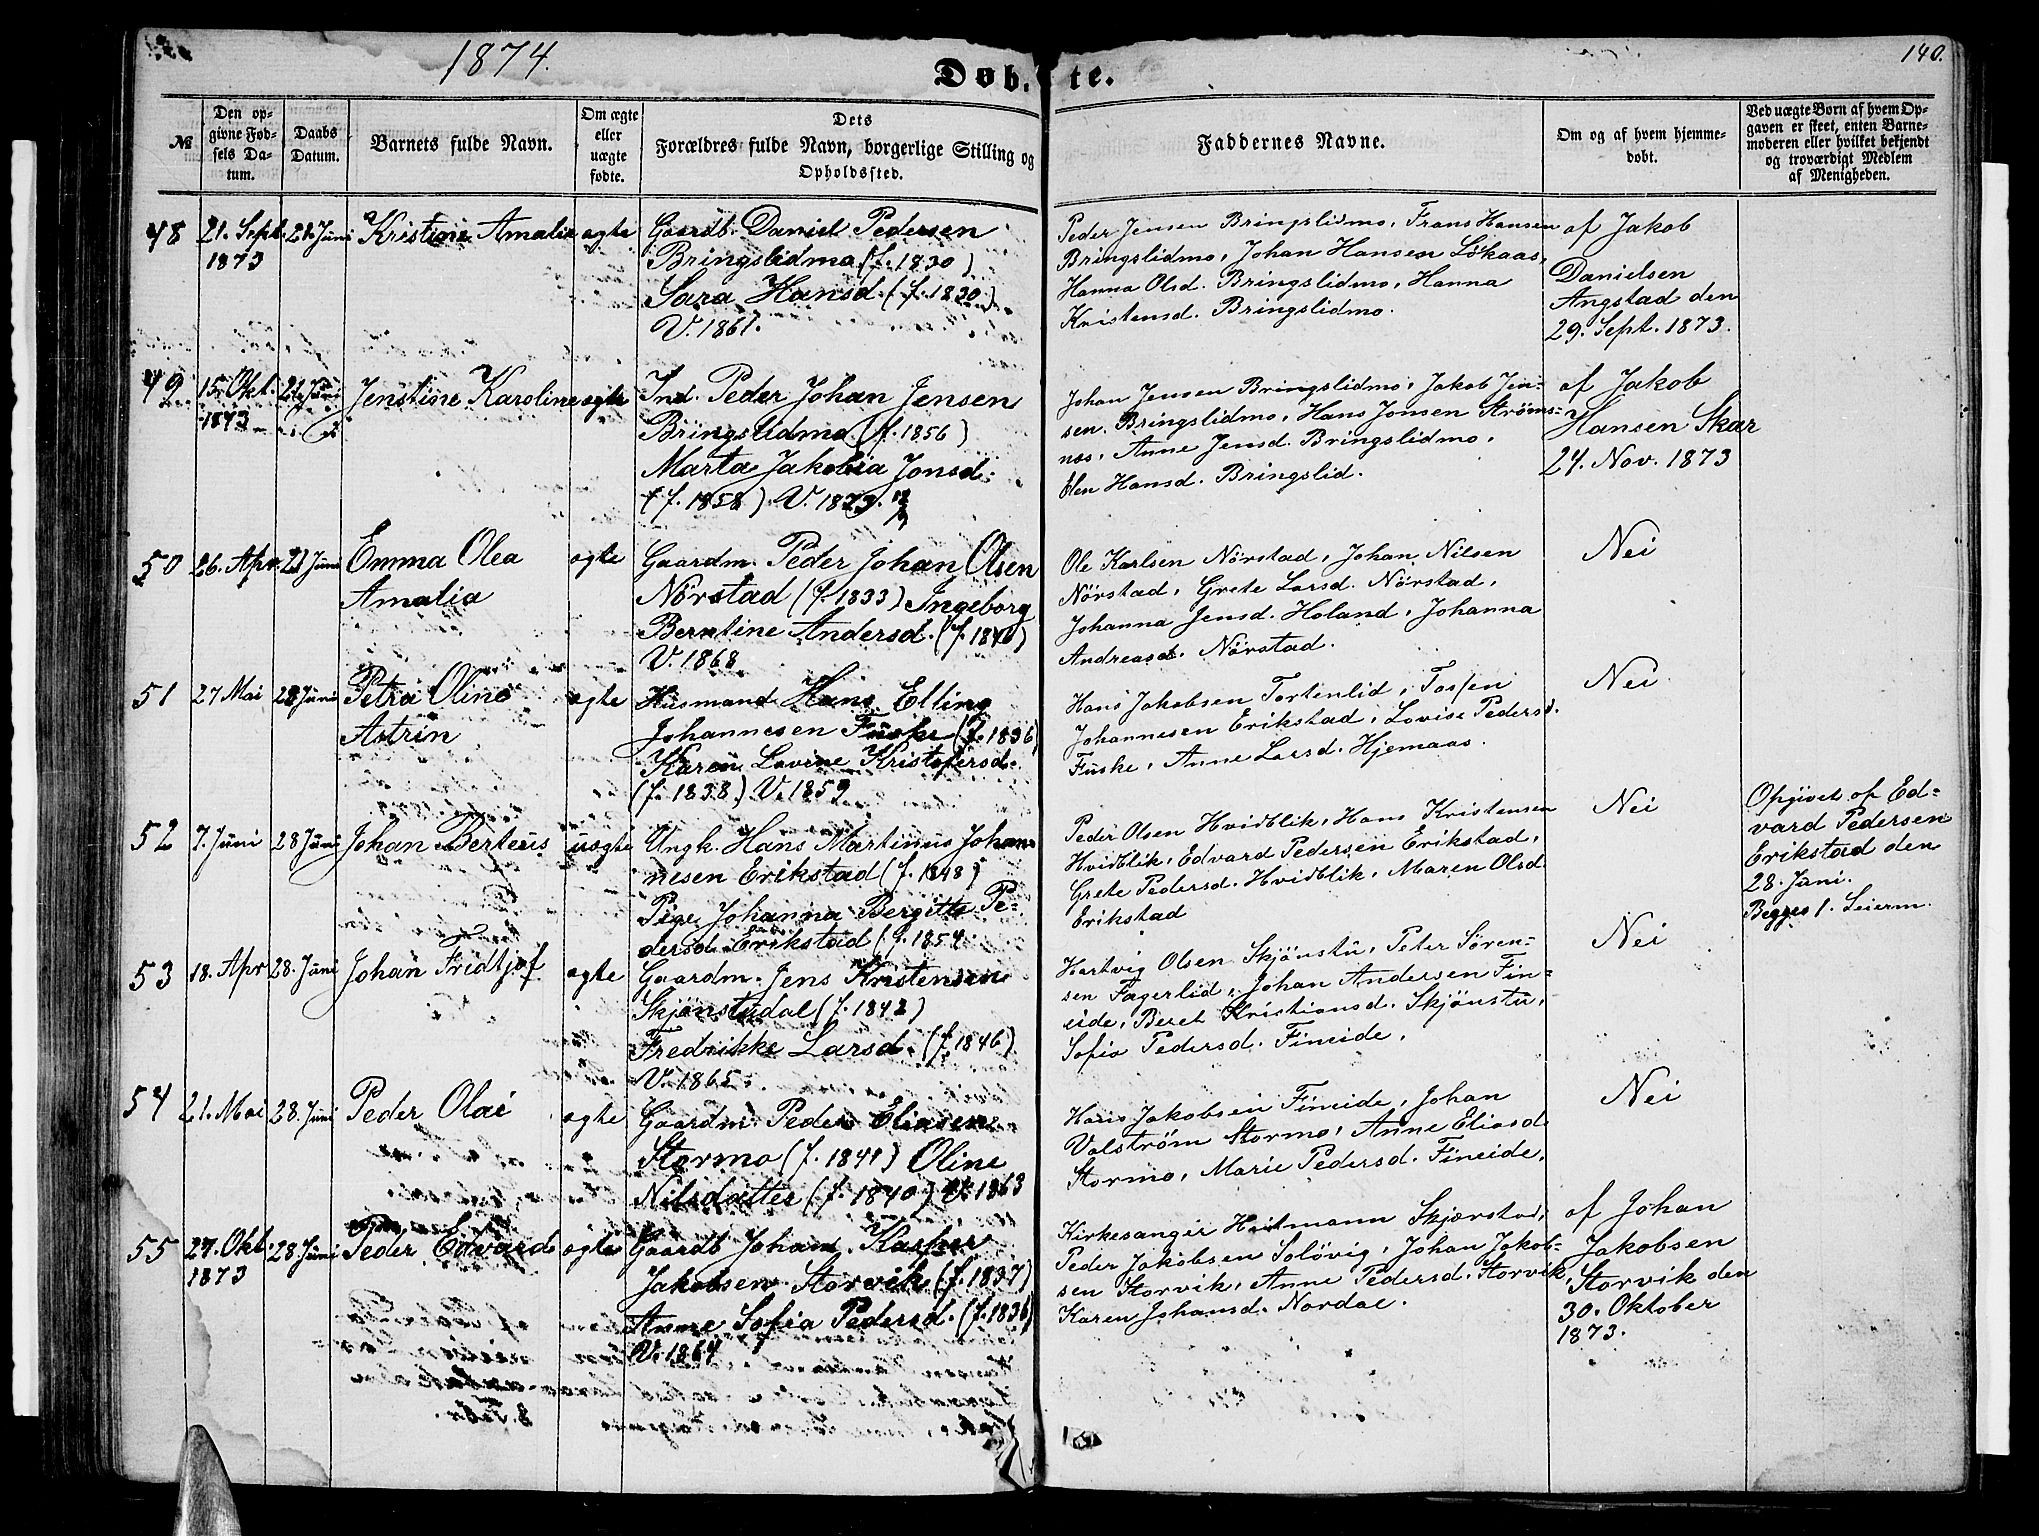 1874.
140.
Døbte.
№
Den op-
givne Fød-
sels Da-
tum.
Daabs
Datum.
Barnets fulde Navn.
Om ægte
eller
uægte
fødte.
Dets
Forældres fulde Navn, borgerlige Stilling og
Opholdssted.
Faddernes Navne.
Om og af hvem hjemme-
døbt.
Ved uægte Børn af hvem Op-
gaven er skeet, enten Barne-
moderen eller hvilket bekjendt
og troværdigt Medlem
af Menigheden.
48
21. Sept.
1873
21. Juni
Kristine Amalia
ægte
Gaardb. Daniel Pedersen
Bringslidmo (f. 1830)
Sara Hansd. (f. 1830)
V. 1861.
Peder Jensen Bringslidmo, Frans Hansen
Bringslidmo, Johan Hansen Lökaas,
Hanna Olsd. Bringslidmo, Hanna
Kristensd. Bringslidmo.
af Jakob
Danielsen
Angstad den
29. Sept. 1873.
49
15. Okt.
1873
21 Juni
Jenstine Karoline
ægte
Ind. Peder Johan Jensen
Bringslidmo (f. 1856)
Marta Jakobia Jonsd.
(f. 1858) V. 1873.
Johan Jensen Bringslidmo, Jakob Jen-
sen Bringslidmo, Hans Jonsen Strøms-
nes, Anne Jensd. Bringslidmo,
Elen Hansd. Bringslid.
af Jakob
Hansen Skar
24. Nov. 1873
50
26. Apr.
21 Juni
Emma Olea
Amalia
ægte
Gaardm. Peder Johan Olsen
Nörstad (f. 1833) Ingeborg
Berntine Andersd.
V. 1868
Ole Karlsen Nörstad, Johan Nilsen
Nörstad, Grete Larsd. Nörstad,
Johanna Jensd. Holand, Johanna
Andreasd. Nörstad.
Nei
51
27 Mai
28 Juni
Petra Oline
Astrin
ægte
Husmand Hans Elling
Johannesen Fuske (f. 1836)
Karen Lovine Kristofersd.
(f. 1838) V. 1859
Hans Jakobsen Tortenlid,
Johannesen Erikstad, Lovise Pedersd.
Fuske, Anne Larsd. Hjemaas.
Nei
52
7. Juni
28 Juni
Johan Berteus
uægte
Ungk. Hans Martinus Johan-
nesen Erikstad (f. 1848)
Pige Johanna Bergitte Pe-
dersd. Erikstad (f. 1854
Peder Olsen Hvidblik, Hans Kristensen
Hvidblik, Edvard Pedersen Erikstad,
Grete Pedersd. Hvidblik, Maren Olsd
Erikstad
Nei
Opgivet af Ed-
vard Pedersen
Erikstad den
28. Juni.
Begges 1. Leierm.
53
18. Apr
28. Juni
Johan Fridtjof
ægte
Gaardm. Jens Kristensen
Skjönstudal (f. 1842)
Fredrikke Larsd. (f. 1846)
V. 1865.
Hartvig Olsen Skjönstu, Peter Sören-
sen Fagerlid, Johan Andersen Fin-
eide, Beret Kristiansd. Skjönstu,
Sofia Pedersd. Fineide.
Nei
54
21. Mai
28. Juni
Peder Olai
ægte
Gaardm. Peder Eliasen
Stormo (f. 1841) Oline
Nilsdatter (f. 1840) V. 1863
Hans Jakobsen Fineide, Johan
Valström Stormo, Anne Eliasd
Stormo, Marie Pedersd. Fineide.
Nei
55
27. Okt.
1873
28 Juni
Peder Edvard
ægte
Gaardb Johan Kasper
Jakobsen Storvik (f. 1837)
Anne Sofia Pedersd. (f. 1836)
V. 1864
Kirkesanger Hartmann Skjerstad,
Peder Jakobsen Solövig, Johan Jakob-
sen Storvik, Anne Pedersd. Storvik,
Karen Johansd. Nordal.
af Johan
Jakobsen
Storvik den
30. Oktober
1873.